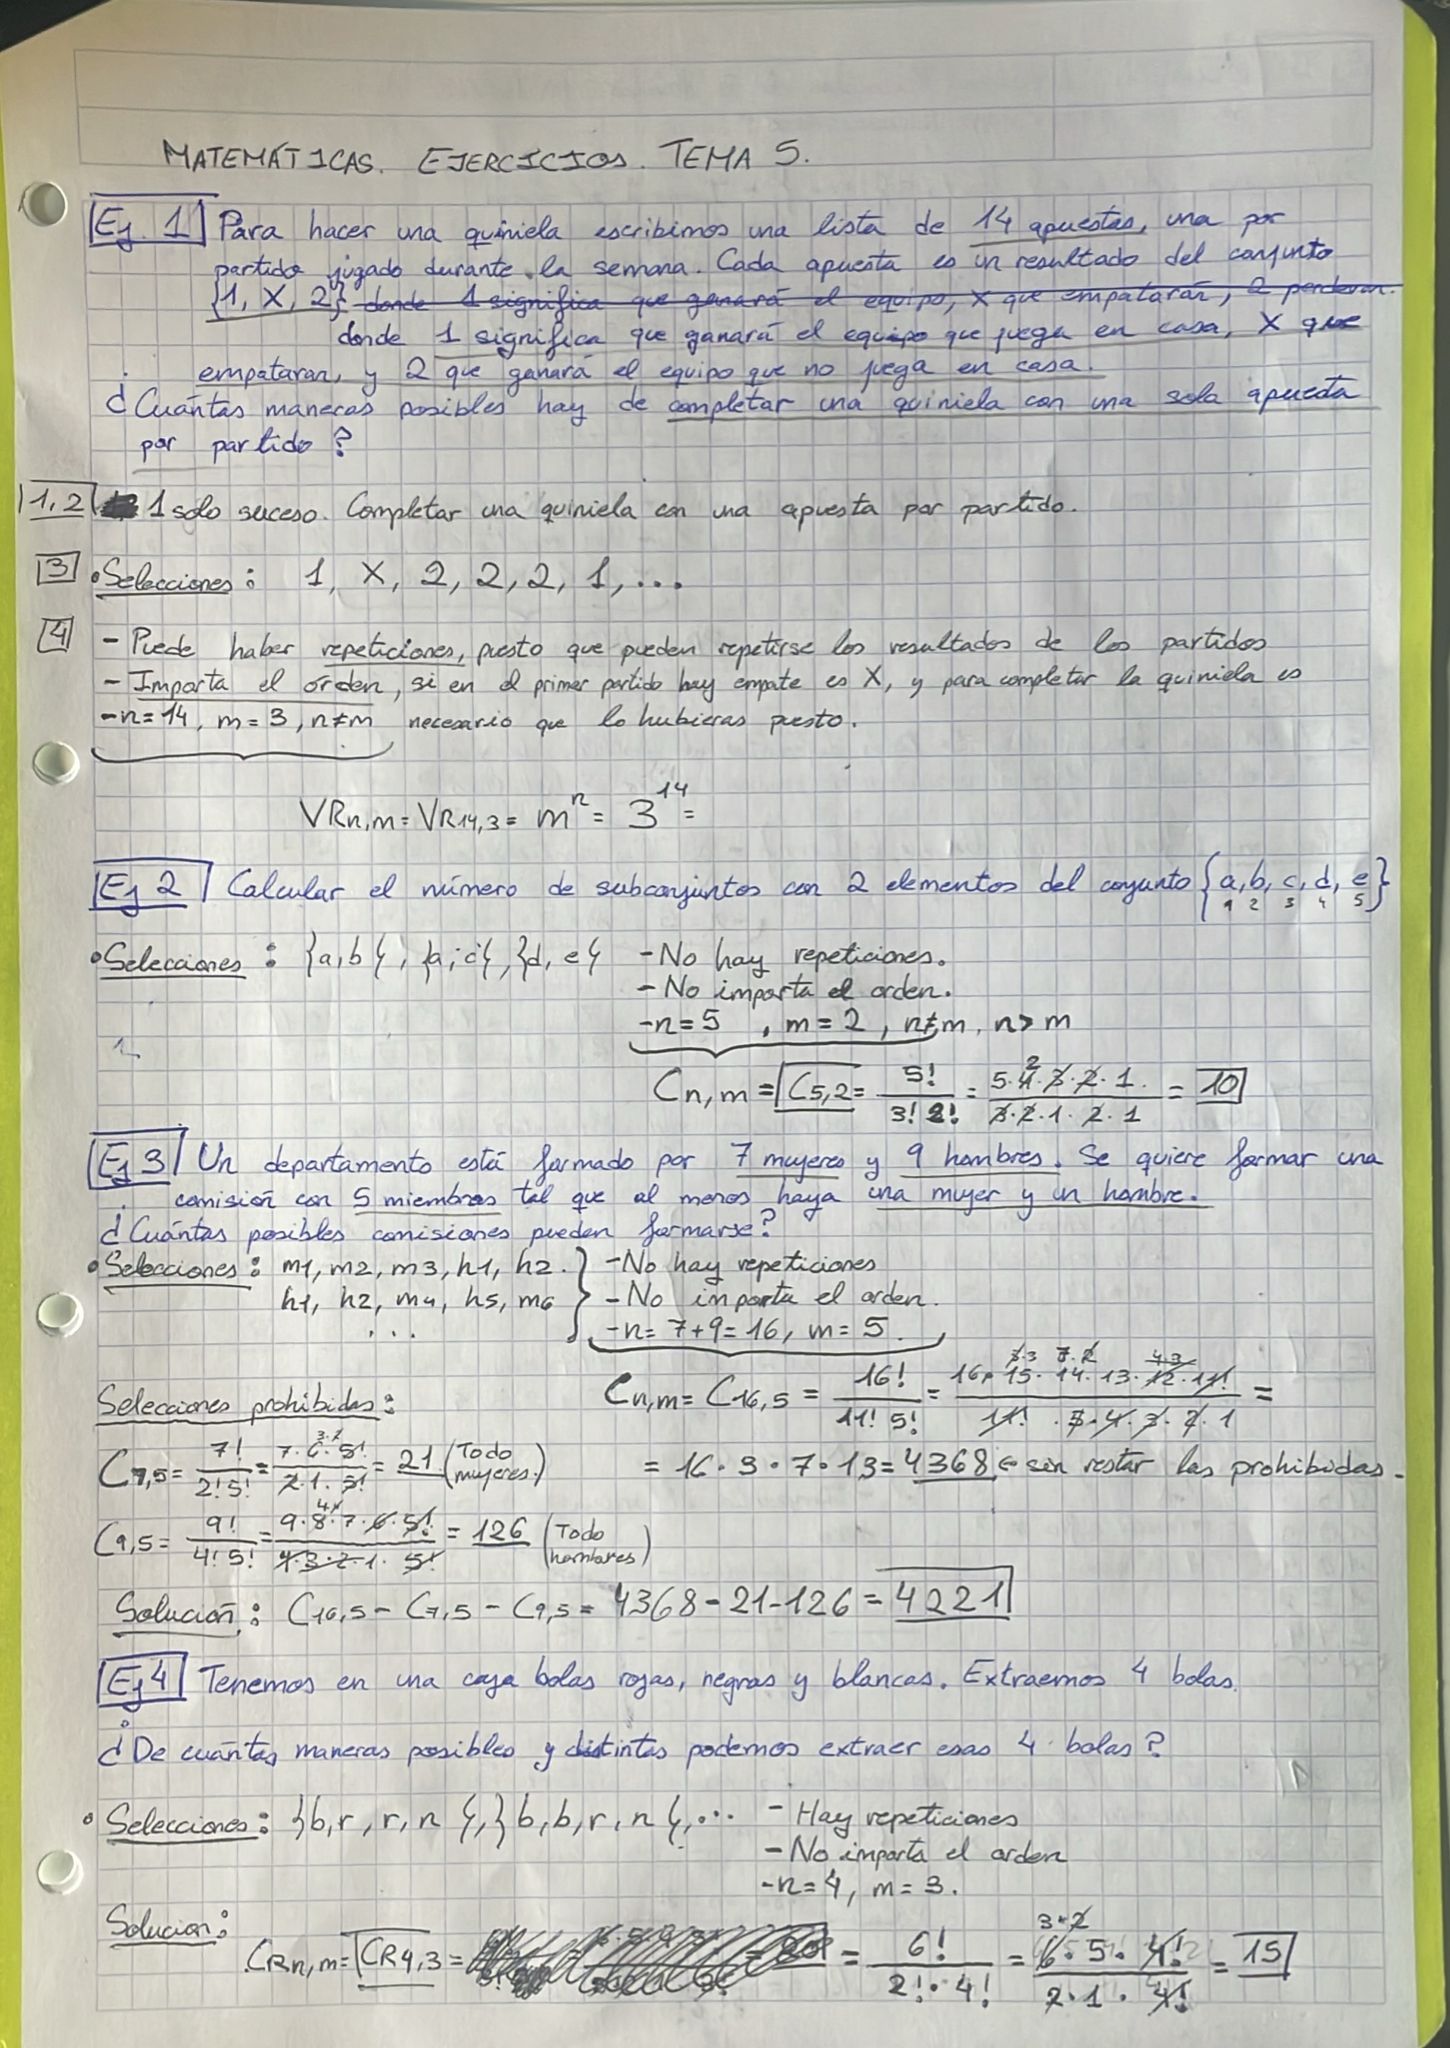 MATEMÁTICAS. EJERCICIOS. TEMA 5.
Ej. 1 Para hacer una quiniela escribimos una lista de 14 apuestas, una por
partido jugado durante la semana. Cada apuesta es un resultado del conjunto
{1, X, 2} donde 1 significa que ganará el equipo, X que empatarán, 2 perderan.
donde 1 significa que ganará el equipo que juega en casa, X que
empataran, y 2 que ganará el equipo que no juega en casa.
¿Cuántas maneras posibles hay de completar una quiniela con una sola apuesta
por partido?
1,2 1 solo suceso. Completar una quiniela con una apuesta por partido.
3 • Selecciones: 1, X, 2, 2, 2, 1, ...
4 - Puede haber repeticiones, puesto que pueden repetirse los resultados de los partidos
- Importa el orden, si en el primer partido hay empate es X, y para completar la quiniela es
- n=14, m=3, n≠m necesario que lo hubieras puesto.
VRn,m = VR14,3 = m^n = 3^14 =
Ej 2 Calcular el número de subconjuntos con 2 elementos del conjunto {a, b, c, d, e}
1 2 3 4 5
• Selecciones: {a,b}, {a,c}, {d,e} - No hay repeticiones.
- No importa el orden.
- n=5, m=2, n≠m, n>m
Cn,m = C5,2 = 5!/3! 2! = 5·4·3·2·1/3·2·1·2·1 = 10
Ej 3 Un departamento está formado por 7 mujeres y 9 hombres. Se quiere formar una
comisión con 5 miembros tal que al menos haya una mujer y un hombre.
¿Cuántas posibles comisiones pueden formarse?
• Selecciones: m1, m2, m3, h1, h2. - No hay repeticiones
h1, h2, m4, h5, m6 - No importa el orden.
... - n= 7+9=16, m=5.
Cn,m = C16,5 = 16!/11! 5! = 16·15·14·13·12·11!/11!·5·4·3·2·1 =
Selecciones prohibidas:
C7,5 = 7!/2!5! = 7·6·5!/2·1·5! = 21 (Todo mujeres) = 16·3·7·13 = 4368 ← sin restar las prohibidas.
C9,5 = 9!/4! 5! = 9·8·7·6·5!/4·3·2·1·5! = 126 (Todo hombres)
Solución: C16,5 - C7,5 - C9,5 = 4368-21-126 = 4221
Ej 4 Tenemos en una caja bolas rojas, negras y blancas. Extraemos 4 bolas.
¿De cuántas maneras posibles y distintas podemos extraer esas 4 bolas?
• Selecciones: {b, r, r, n}, {b, b, r, n}, ... - Hay repeticiones
- No importa el orden
- n=4, m=3.
Solucion:
CRn,m = CR4,3 = = 6!/2!·4! = 6·5·4!/2·1·4! = 15